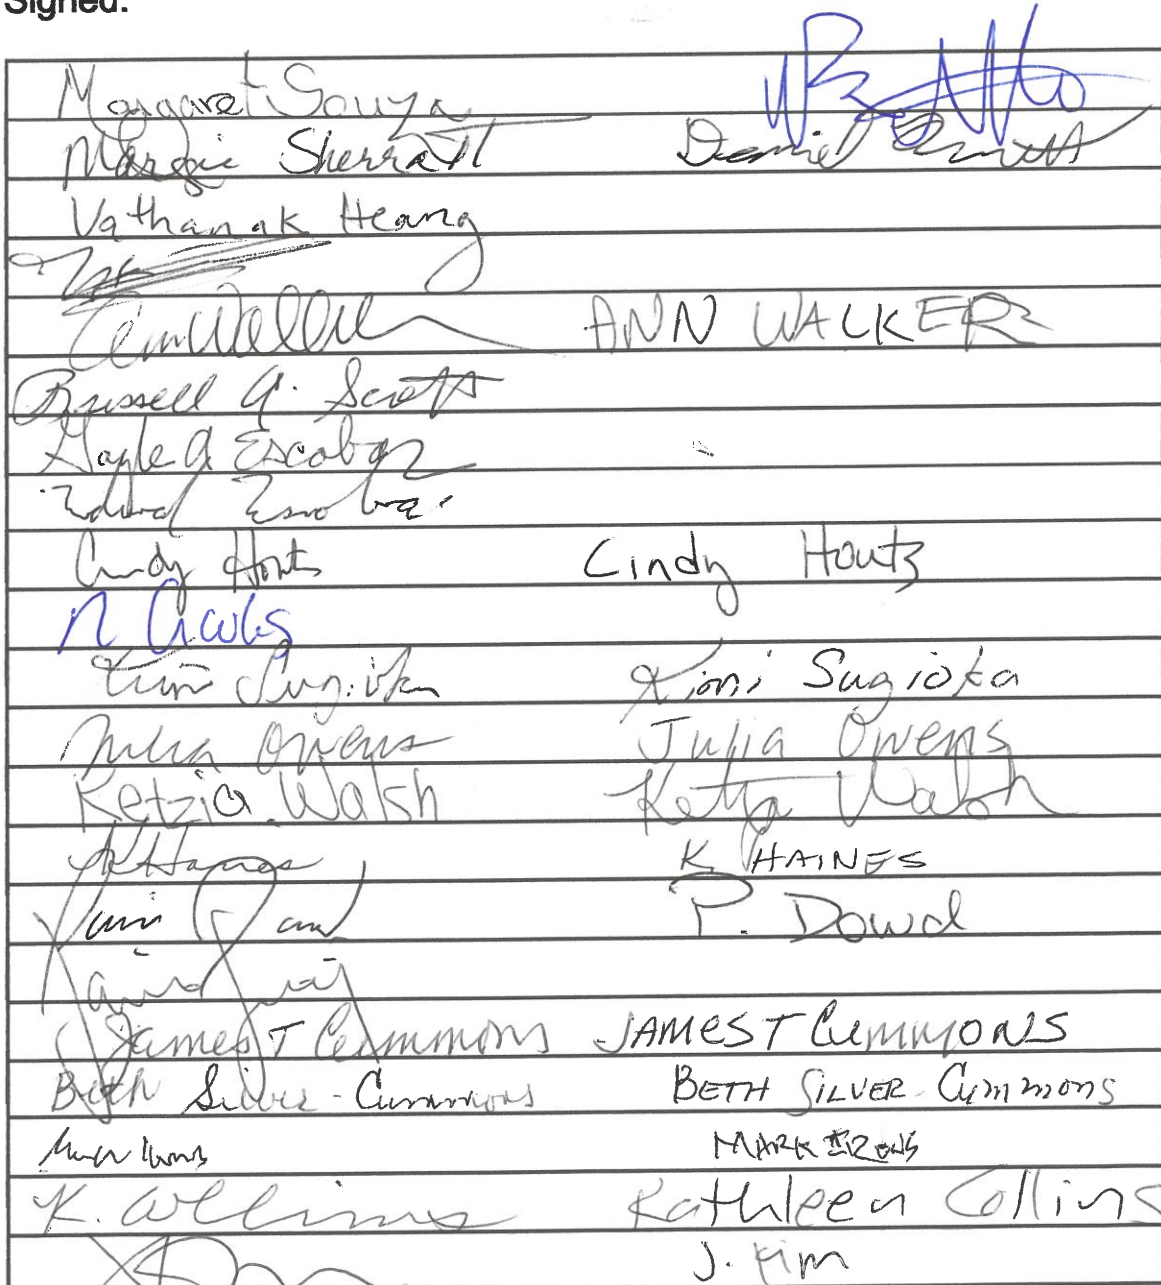 Signed:
Margaret Souza
Margie Sherratt Daniel
Vathanak Heang
Ann Walker ANN WALKER
Russell A. Scott
Gayle A Escobar
Escobar
Cindy Houtz Cindy Houtz
N
Kimi Sugioka Kimi Sugioka
Julia Owens Julia Owens
Ketzia Walsh Ketzia Walsh
K Haines K HAINES
P. Dowd
James T Cummons JAMES T CUMMONS
Beth Silver-Cummons BETH SILVER-Cummons
Mark Irons MARK IRONS
K. Collins Kathleen Collins
J. Kim